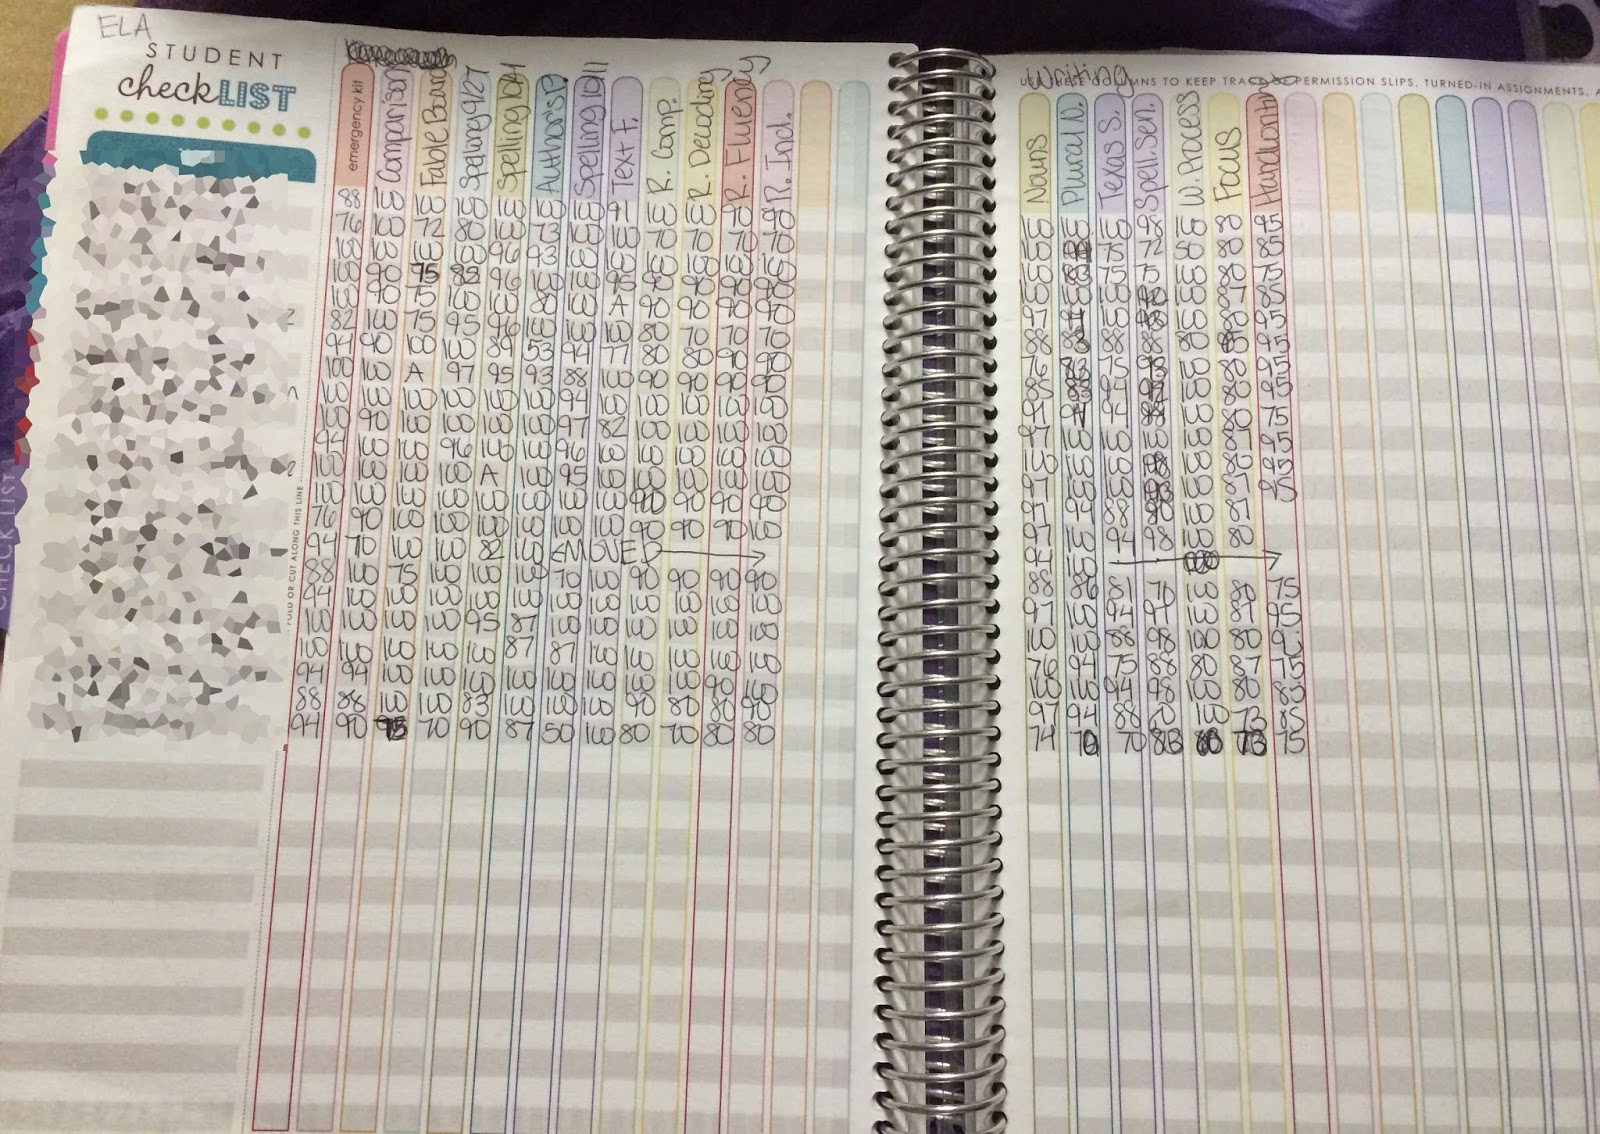 ELA
STUDENT
checkLIST
emergency kit
Comparison
Fable Board
Spelling 9/27
Spelling 10/4
Author's P.
Spelling 10/11
Text F.
R. Comp.
R. Decoding
R. Fluency
R. Ind.
88 100 100 100 100 100 100 91 100 100 90 90
76 100 72 80 100 73 100 100 70 70 70 70
100 100 100 100 96 93 100 100 100 100 100 100
100 90 75 82 96 100 100 95 90 90 90
100 90 75 100 100 80 100 A 90 90 90 90
82 100 75 95 96 100 100 100 80 70 70 70
94 90 100 100 89 53 94 77 80 80 90 90
100 100 A 97 95 93 88 100 90 90 90 90
100 100 100 100 100 100 94 100 100 100 100 100
100 90 100 100 100 100 97 82 100 100 100 100
94 100 100 96 100 100 96 100 100 100 100 100
100 100 100 100 A 100 95 100 100 100 100 100
100 100 100 100 100 100 100 100 90 90 90 90
76 90 100 100 100 100 100 100 90 90 90 100
94 70 100 100 82 100 MOVED
88 100 75 100 100 100 70 100 90 90 90 90
94 100 100 100 100 100 100 100 100 100 100 100
100 100 100 100 95 87 100 100 100 100 100 100
100 100 100 100 100 87 87 100 100 100 100 100
94 94 100 100 100 100 100 100 100 100 90 100
88 88 100 100 83 100 100 100 90 80 80 90
94 90 70 90 87 50 100 80 70 80 80
OLD OR CUT ALONG THIS LINE
CHECKLIST
Writing
USE THESE COLUMNS TO KEEP TRACK OF PERMISSION SLIPS, TURNED-IN ASSIGNMENTS,
Nouns
Plural N.
Texas S.
Spell. Sen.
W. Process
Focus
Handwriting
100 100 100 98 100 80 95
100 75 72 50 80 85
100 83 75 75 100 80 75
100 100 100 100 87 85
97 94 100 98 100 80 95
88 88 88 80 95
76 83 75 98 100 80 95
85 94 100 80 95
91 94 100 80 75
97 100 100 100 100 87 95
100 100 100 98 100 80 95
97 100 100 100 87 95
97 94 88 80 100 87
97 100 94 98 100 80
94 100
88 86 81 70 100 80 75
97 100 94 97 100 87 95
100 100 88 98 100 80
76 94 75 88 80 87 75
100 100 94 98 100 80 85
97 94 88 70 100 73 85
74 70 70 73 75